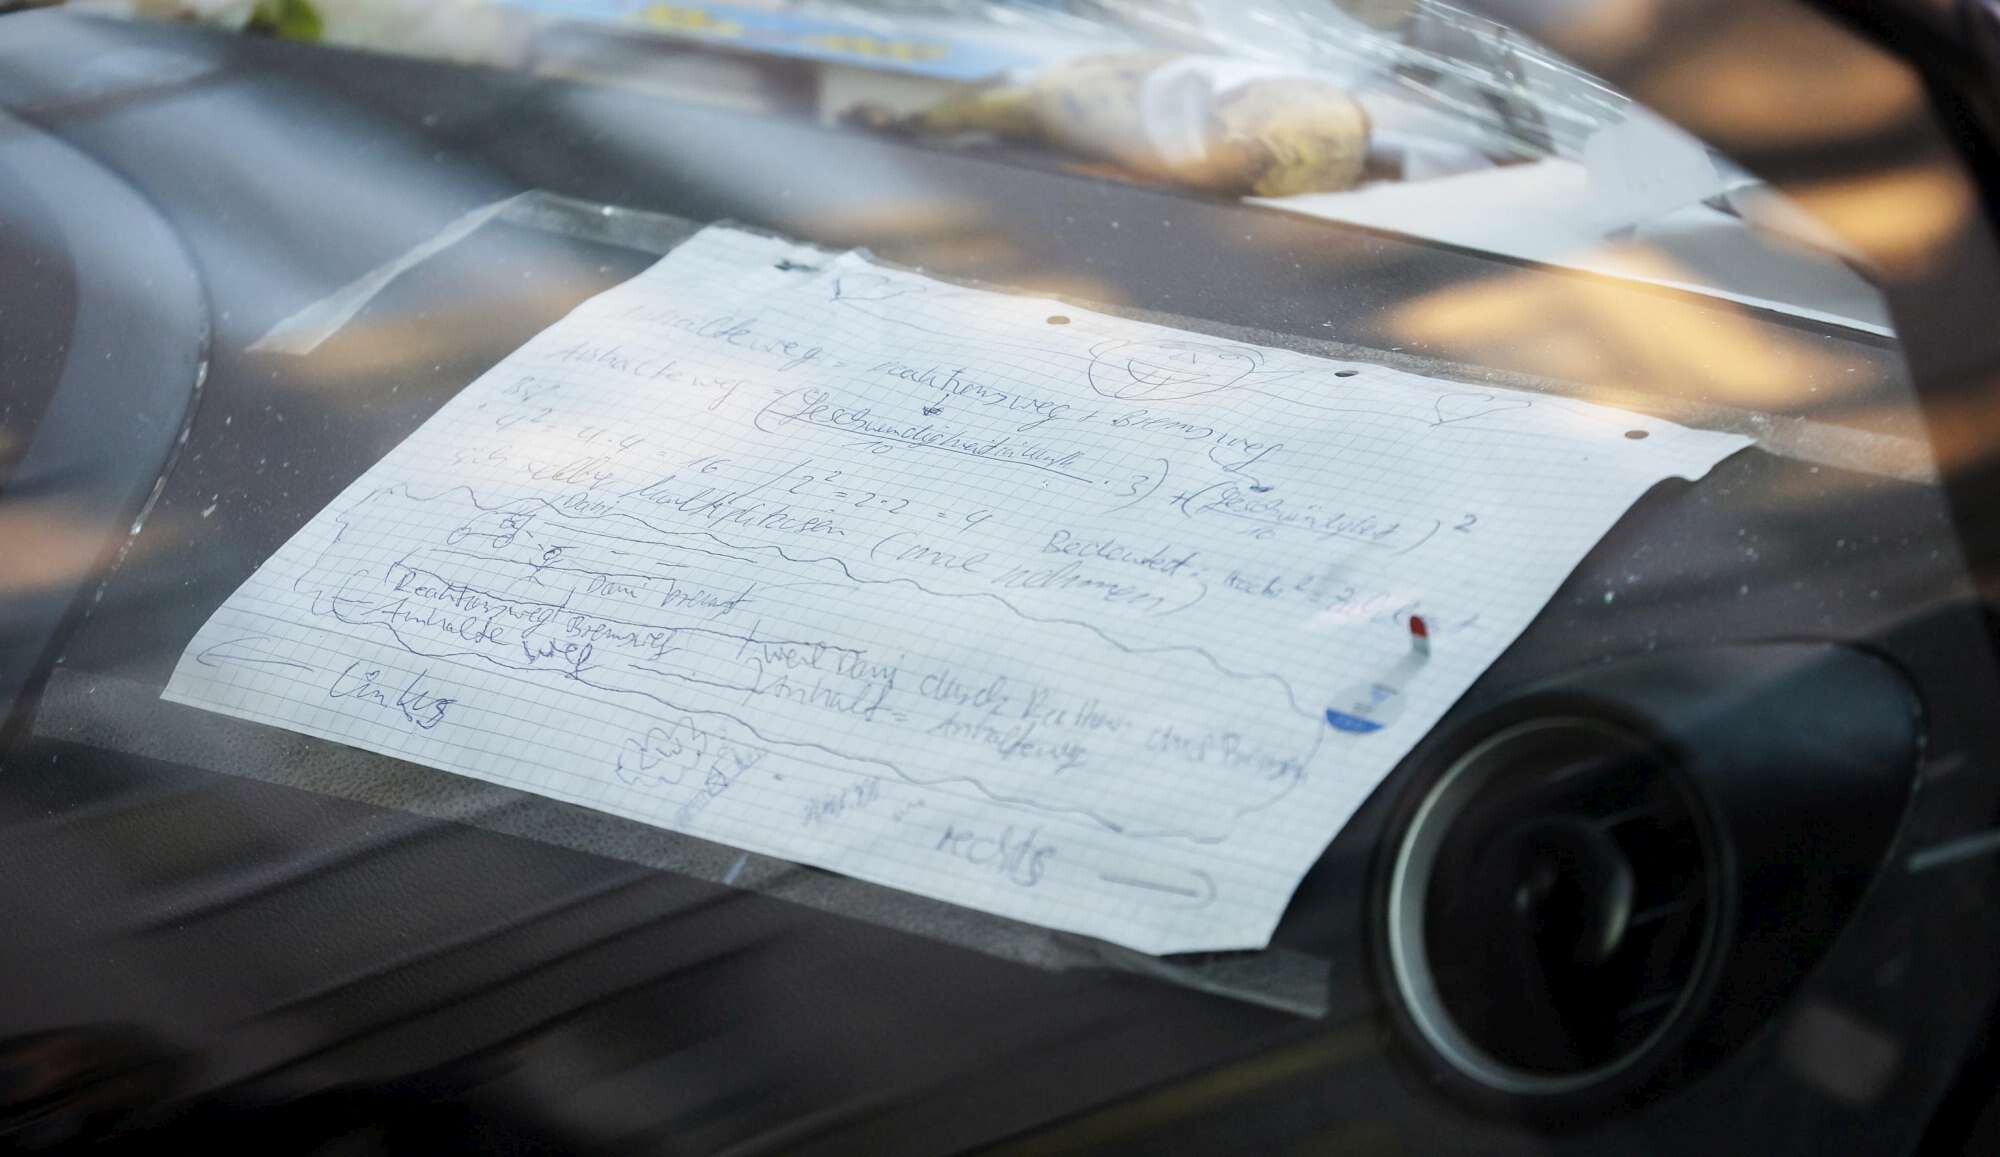 Anhalteweg = Reaktionsweg + Bremsweg
Anhalteweg = (Geschwindigkeit in km/h / 10 · 3) + (Geschwindigkeit / 10)²
4² = 4·4 = 16 / 2² = 2·2 = 4 Bedeutet: hoch ² =
sich selber Multiplizieren (mal nehmen)
Dani
Dani bremst
Reaktionsweg Bremsweg
Anhalte weg
weil Dani durch
Anhalt = Anhalteweg
links
rechts